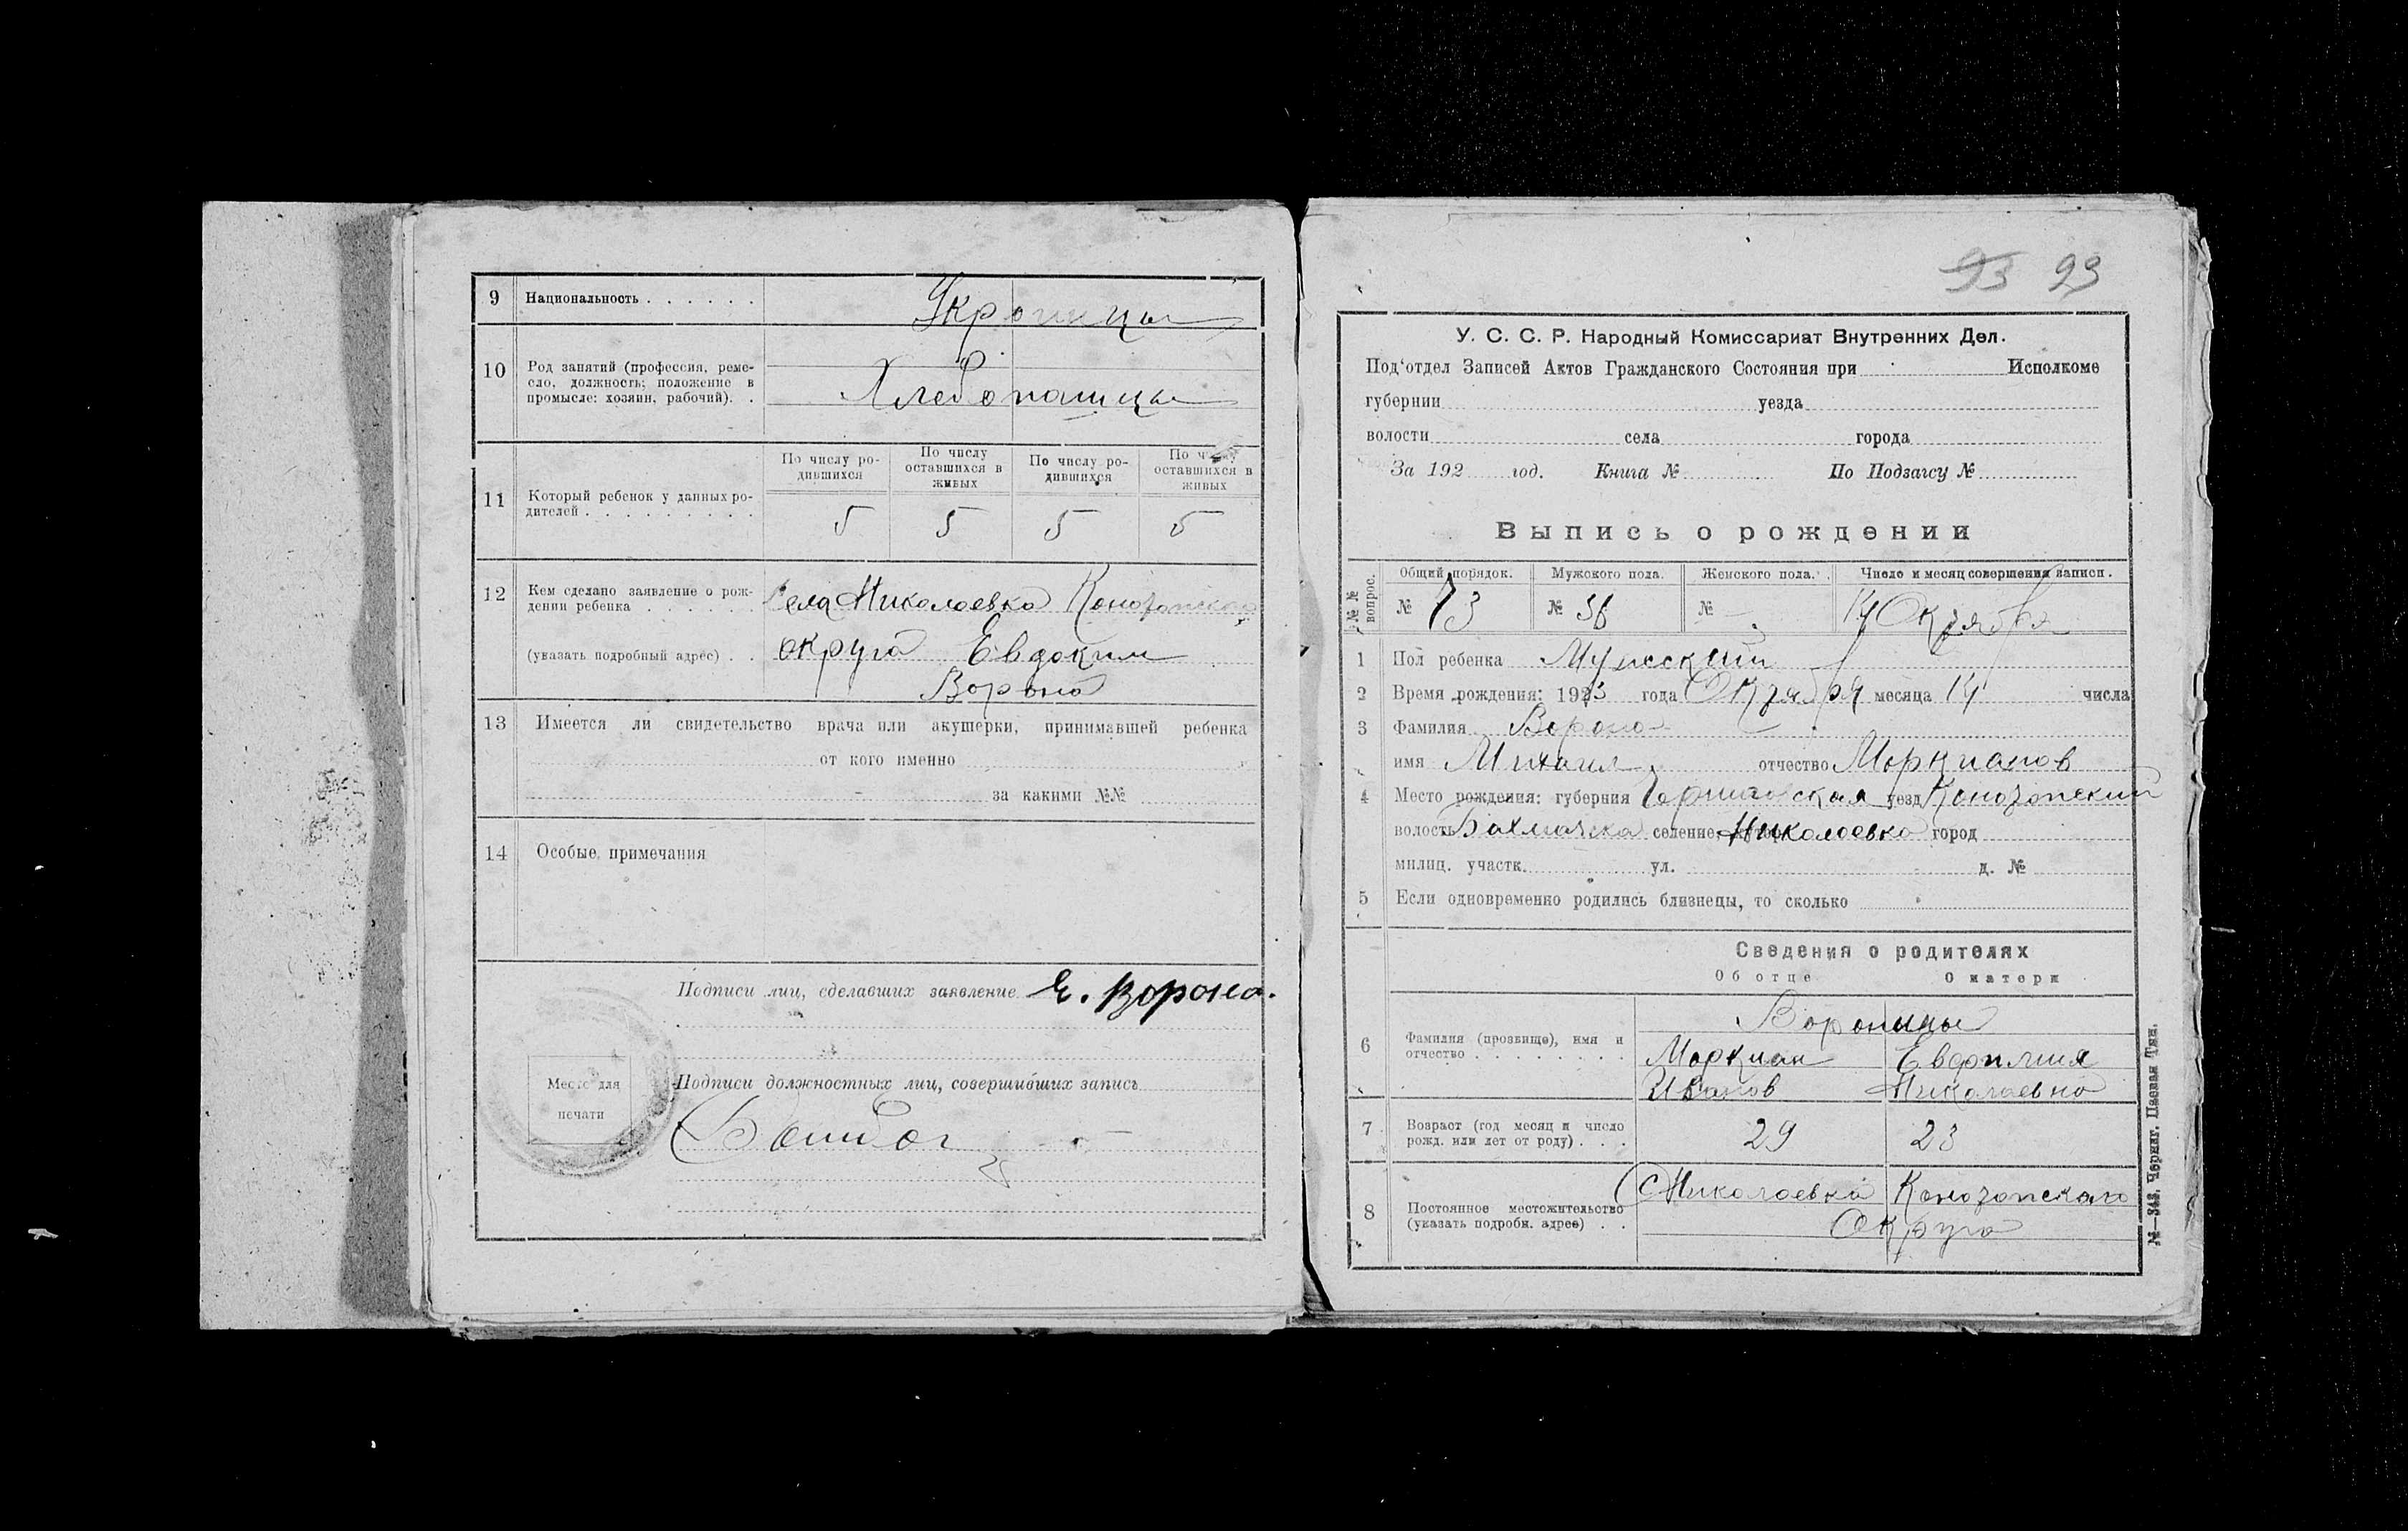 9 Национальность . . . . . . Украинцы
10 Род занятий (профессия, реме-
сло, должность; положение в
промысле: хозяин, рабочий). . Хлебопашцы
По числу ро-
дившихся
По числу
оставшихся в
живых
По числу ро-
дившихся
По числу
оставшихся в
живых
11 Который ребенок у данных ро-
дителей . . . . . . . . . 5 5 5 5
12 Кем сделано заявление о рож-
дении ребенка . . . . . . Села Николаевка Конотопского
(указать подробный адрес) . . округа Евдоким
Ворона
13 Имеется ли свидетельство врача или акушерки, принимавшей ребенка
от кого именно
за какими №№
14 Особые примечания
Подписи лиц, сделавших заявление Е. Ворона.
Место для
печати
Подписи должностных лиц, совершивших запись
93 93
У. С. С. Р. Народный Комиссариат Внутренних Дел.
Под'отдел Записей Актов Гражданского Состояния при Исполкоме
губернии уезда
волости села города
За 192 год. Книга № По Подзагсу №
Выпись о рождении
№№ вопрос.
Общий порядок. Мужского пола. Женского пола. Число и месяц совершения записи.
№ 73 № 36 № - 14 Октября
1 Пол ребенка Мужской
2 Время рождения: 1923 года Октября месяца 14 числа
3 Фамилия Ворона
имя Михаил отчество Маркианов
4 Место рождения: губерния Черниговская уезд Конотопский
волость Бахмачска селение Николаевка город
милиц. участк. ул. д. №
5 Если одновременно родились близнецы, то сколько
Сведения о родителях
Об отце О матери
6 Фамилия (прозвище), имя и
отчество . . . . . . . .
Воронины
Маркиан Евфимия
Иванов Николаевна
7 Возраст (год месяц и число
рожд. или лет от роду) . . . 29 23
8 Постоянное местожительство
(указать подробн. адрес) . .
с Николаевка Конотопского
Округа
№—343. Черниг. Паевая Тип.